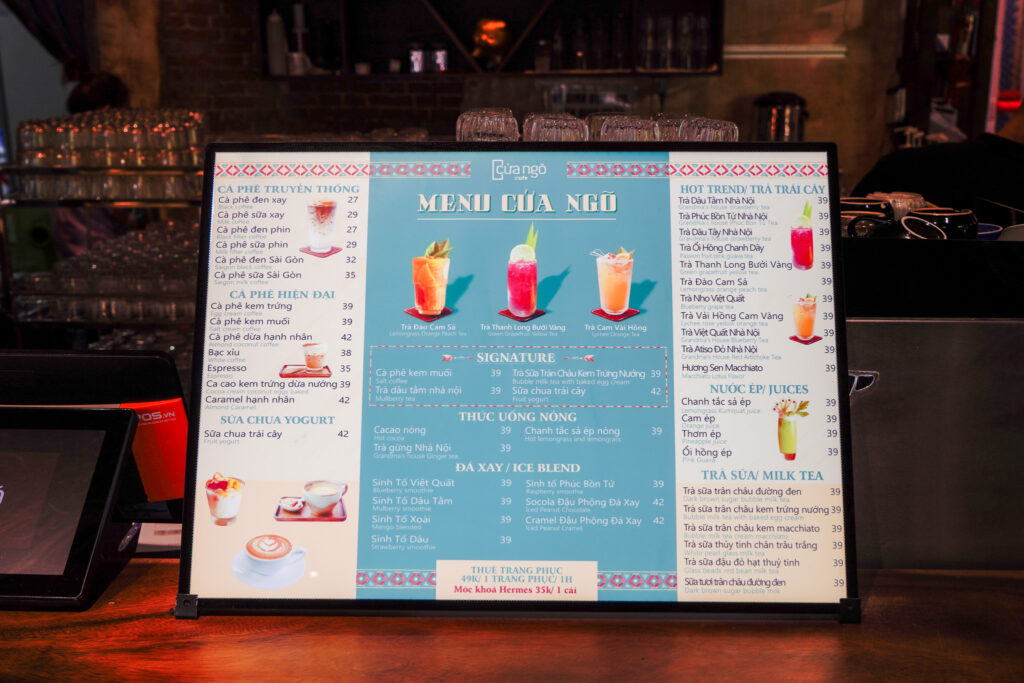 cửa ngõ
cafe
MENU CỬA NGÕ
CÀ PHÊ TRUYỀN THỐNG
Cà phê đen xay 27
Black coffee
Cà phê sữa xay 29
Milk coffee
Cà phê đen phin 27
Black filter coffee
Cà phê sữa phin 29
Milk filter coffee
Cà phê đen Sài Gòn 32
Saigon black coffee
Cà phê sữa Sài Gòn 35
Saigon milk coffee
CÀ PHÊ HIỆN ĐẠI
Cà phê kem trứng 39
Egg cream coffee
Cà phê kem muối 39
Salt cream coffee
Cà phê dừa hạnh nhân 42
Almond coconut coffee
Bạc xỉu 38
White coffee
Espresso 35
Espresso
Ca cao kem trứng dừa nướng 39
Cocoa cream coconut egg baked
Caramel hạnh nhân 42
Almond Caramel
SỮA CHUA YOGURT
Sữa chua trái cây 42
Fruit yogurt
Trà Đào Cam Sả
Lemongrass Orange Peach Tea
Trà Thanh Long Bưởi Vàng
Green Grapefruit Yellow Tea
Trà Cam Vải Hồng
Lychee Orange Tea
SIGNATURE
Cà phê kem muối 39
Salt coffee
Trà dâu tằm nhà nội 39
Mulberry tea
Trà Sữa Trân Châu Kem Trứng Nướng 39
Bubble milk tea with baked egg cream
Sữa chua trái cây 42
Fruit yogurt
THỨC UỐNG NÓNG
Cacao nóng 39
Hot cocoa
Trà gừng Nhà Nội 39
Grandma's house Ginger tea
Chanh tắc sả ép nóng 39
Hot lemongrass and lemongrass
ĐÁ XAY / ICE BLEND
Sinh Tố Việt Quất 39
Blueberry smoothie
Sinh Tố Dâu Tằm 39
Mulberry smoothie
Sinh Tố Xoài 39
Mango blended
Sinh Tố Dâu 39
Strawberry smoothie
Sinh tố Phúc Bồn Tử 39
Raspberry smoothie
Socola Đậu Phộng Đá Xay 42
Iced Peanut Chocolate
Cramel Đậu Phộng Đá Xay 42
Iced Peanut Cramel
THUÊ TRANG PHỤC
49K/ 1 TRANG PHỤC/ 1H
Móc khoá Hermes 35k/ 1 cái
HOT TREND/ TRÀ TRÁI CÂY
Trà Dâu Tằm Nhà Nội 39
Grandma's house strawberry tea
Trà Phúc Bồn Tử Nhà Nội 39
Grandma's house Phuc Bon Tu Tea
Trà Dâu Tây Nhà Nội 39
Grandma's house strawberry tea
Trà Ổi Hồng Chanh Dây 39
Passion Fruit pink guava tea
Trà Thanh Long Bưởi Vàng 39
Green grapefruit yellow tea
Trà Đào Cam Sả 39
Lemongrass orange peach tea
Trà Nho Việt Quất 39
Blueberry grape tea
Trà Vải Hồng Cam Vàng 39
Lychee rose yellow orange tea
Trà Việt Quất Nhà Nội 39
Grandma's House Blueberry Tea
Trà Atiso Đỏ Nhà Nội 39
Grandma's House Red Artichoke Tea
Hương Sen Macchiato 39
Macchiato Lotus Flavor
NƯỚC ÉP/ JUICES
Chanh tắc sả ép 39
Lemongrass Kumquat juice
Cam ép 39
Orange juice
Thơm ép 39
Pineapple juice
Ổi hồng ép 39
Pink Guava
TRÀ SỮA/ MILK TEA
Trà sữa trân châu đường đen 39
Dark brown sugar bubble milk tea
Trà sữa trân châu kem trứng nướng 39
Bubble milk tea with baked egg cream
Trà sữa trân châu kem macchiato 39
Bubble milk tea cream macchiato
Trà sữa thủy tinh chân trâu trắng 39
White pearl glass milk tea
Trà sữa đậu đỏ hạt thuỷ tinh 39
Glass beads red bean milk tea
Sữa tươi trân châu đường đen 39
Dark brown sugar bubble milk
POS.VN